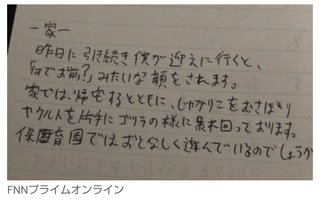 ー家ー
昨日に引続き僕が迎えに行くと、
「何でお前？」みたいな顔をされます。
家では、帰宅するとともに、じゃがりこをむさぼり
ヤクルトを片手にゴリラの様に暴れ回っております。
保育園ではおとなしく遊んでいるのでしょうか
FNNプライムオンライン